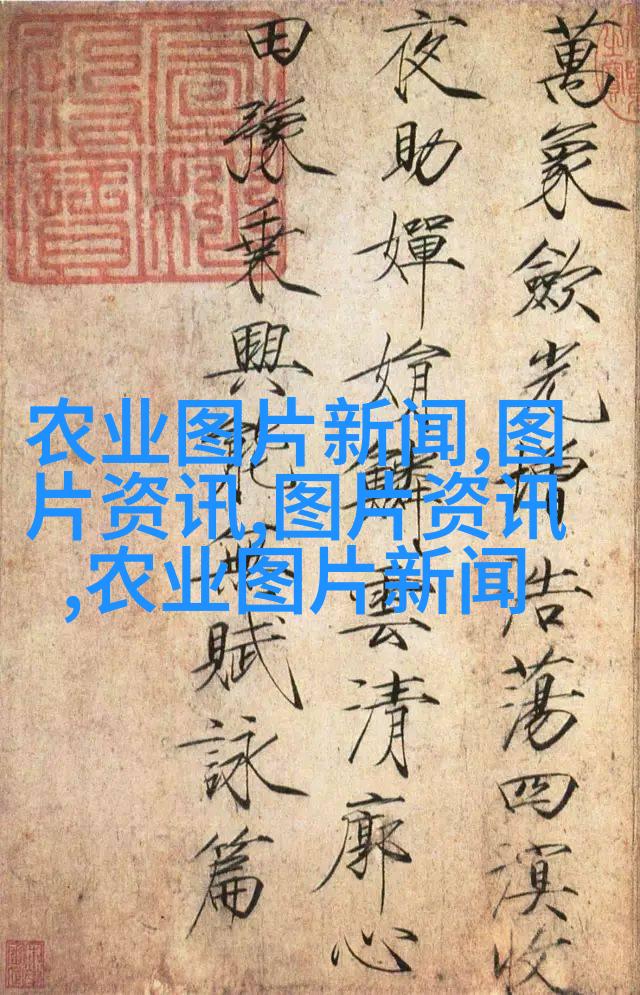 萬象歛光增浩蕩四溟收
夜助嬋娟鱗雲清廓心
田豫乗興能無賦詠篇
农业图片新闻,图
片资讯,图片资讯
,农业图片新闻